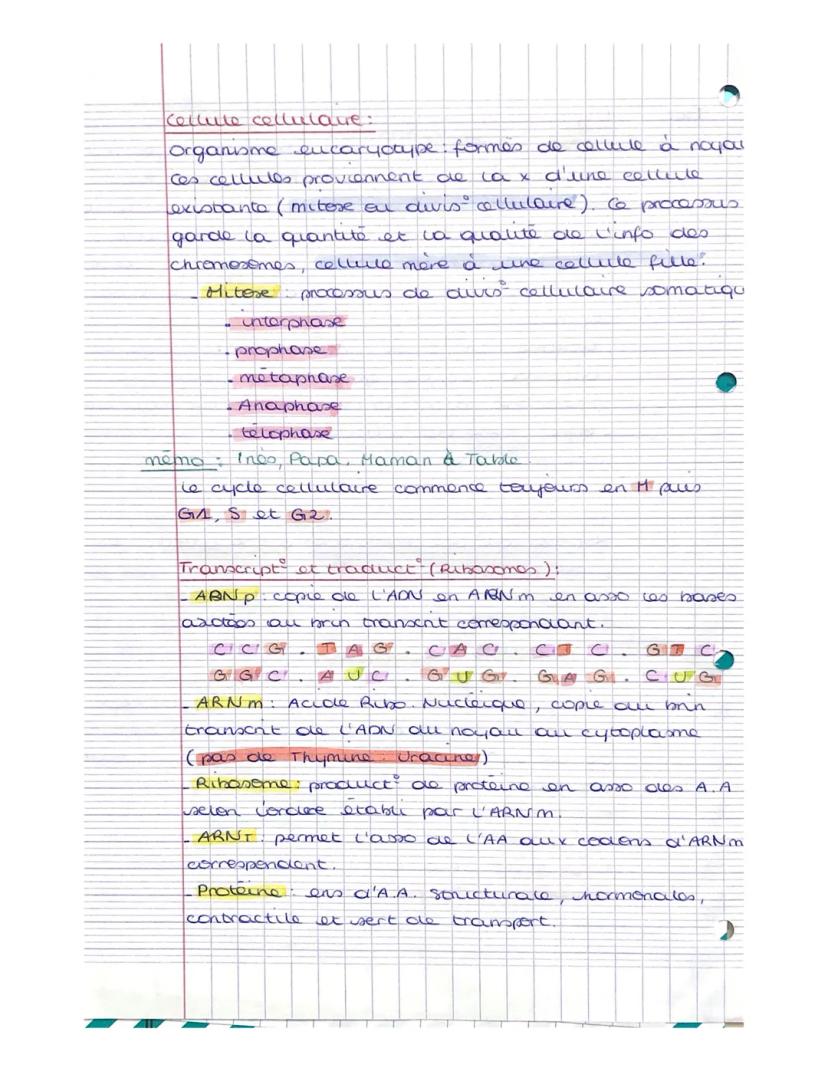 Cellule cellulaire :
Organisme eucaryotype : formés de cellule à noyau
Ces cellules proviennent de la x d'une cellule
existante (mitose ou divis° cellulaire). Ce processus
garde la quantité et la qualité de l'info des
chromosomes, cellule mère à une cellule fille.
- Mitose : processus de divis° cellulaire somatiqu
- interphase
- prophase
- métaphase
- Anaphase
- télophase
mémo : Inès, Papa, Maman à Table
Le cycle cellulaire commence toujours en M puis
G1, S et G2.
Transcript° et traduct° (Ribosomes) :
- ARNp : copie de l'ADN en ARNm en asso les bases
azotées au brin transcrit correspondant.
C C G . T A G . C A C . C T C . G T C
G G C . A U C . G U G . G A G . C U G
- ARNm : Acide Ribo. Nucléique, copie du brin
transcrit de l'ADN du noyau au cytoplasme
(pas de Thymine. Uracine)
- Ribosome : product° de protéine en asso des A.A
selon l'ordre établi par l'ARNm.
- ARNT : permet l'asso de l'AA aux codons d'ARNm
correspondant.
- Protéine : ens d'A.A. structurale, hormonales,
contractile et sert de transport.